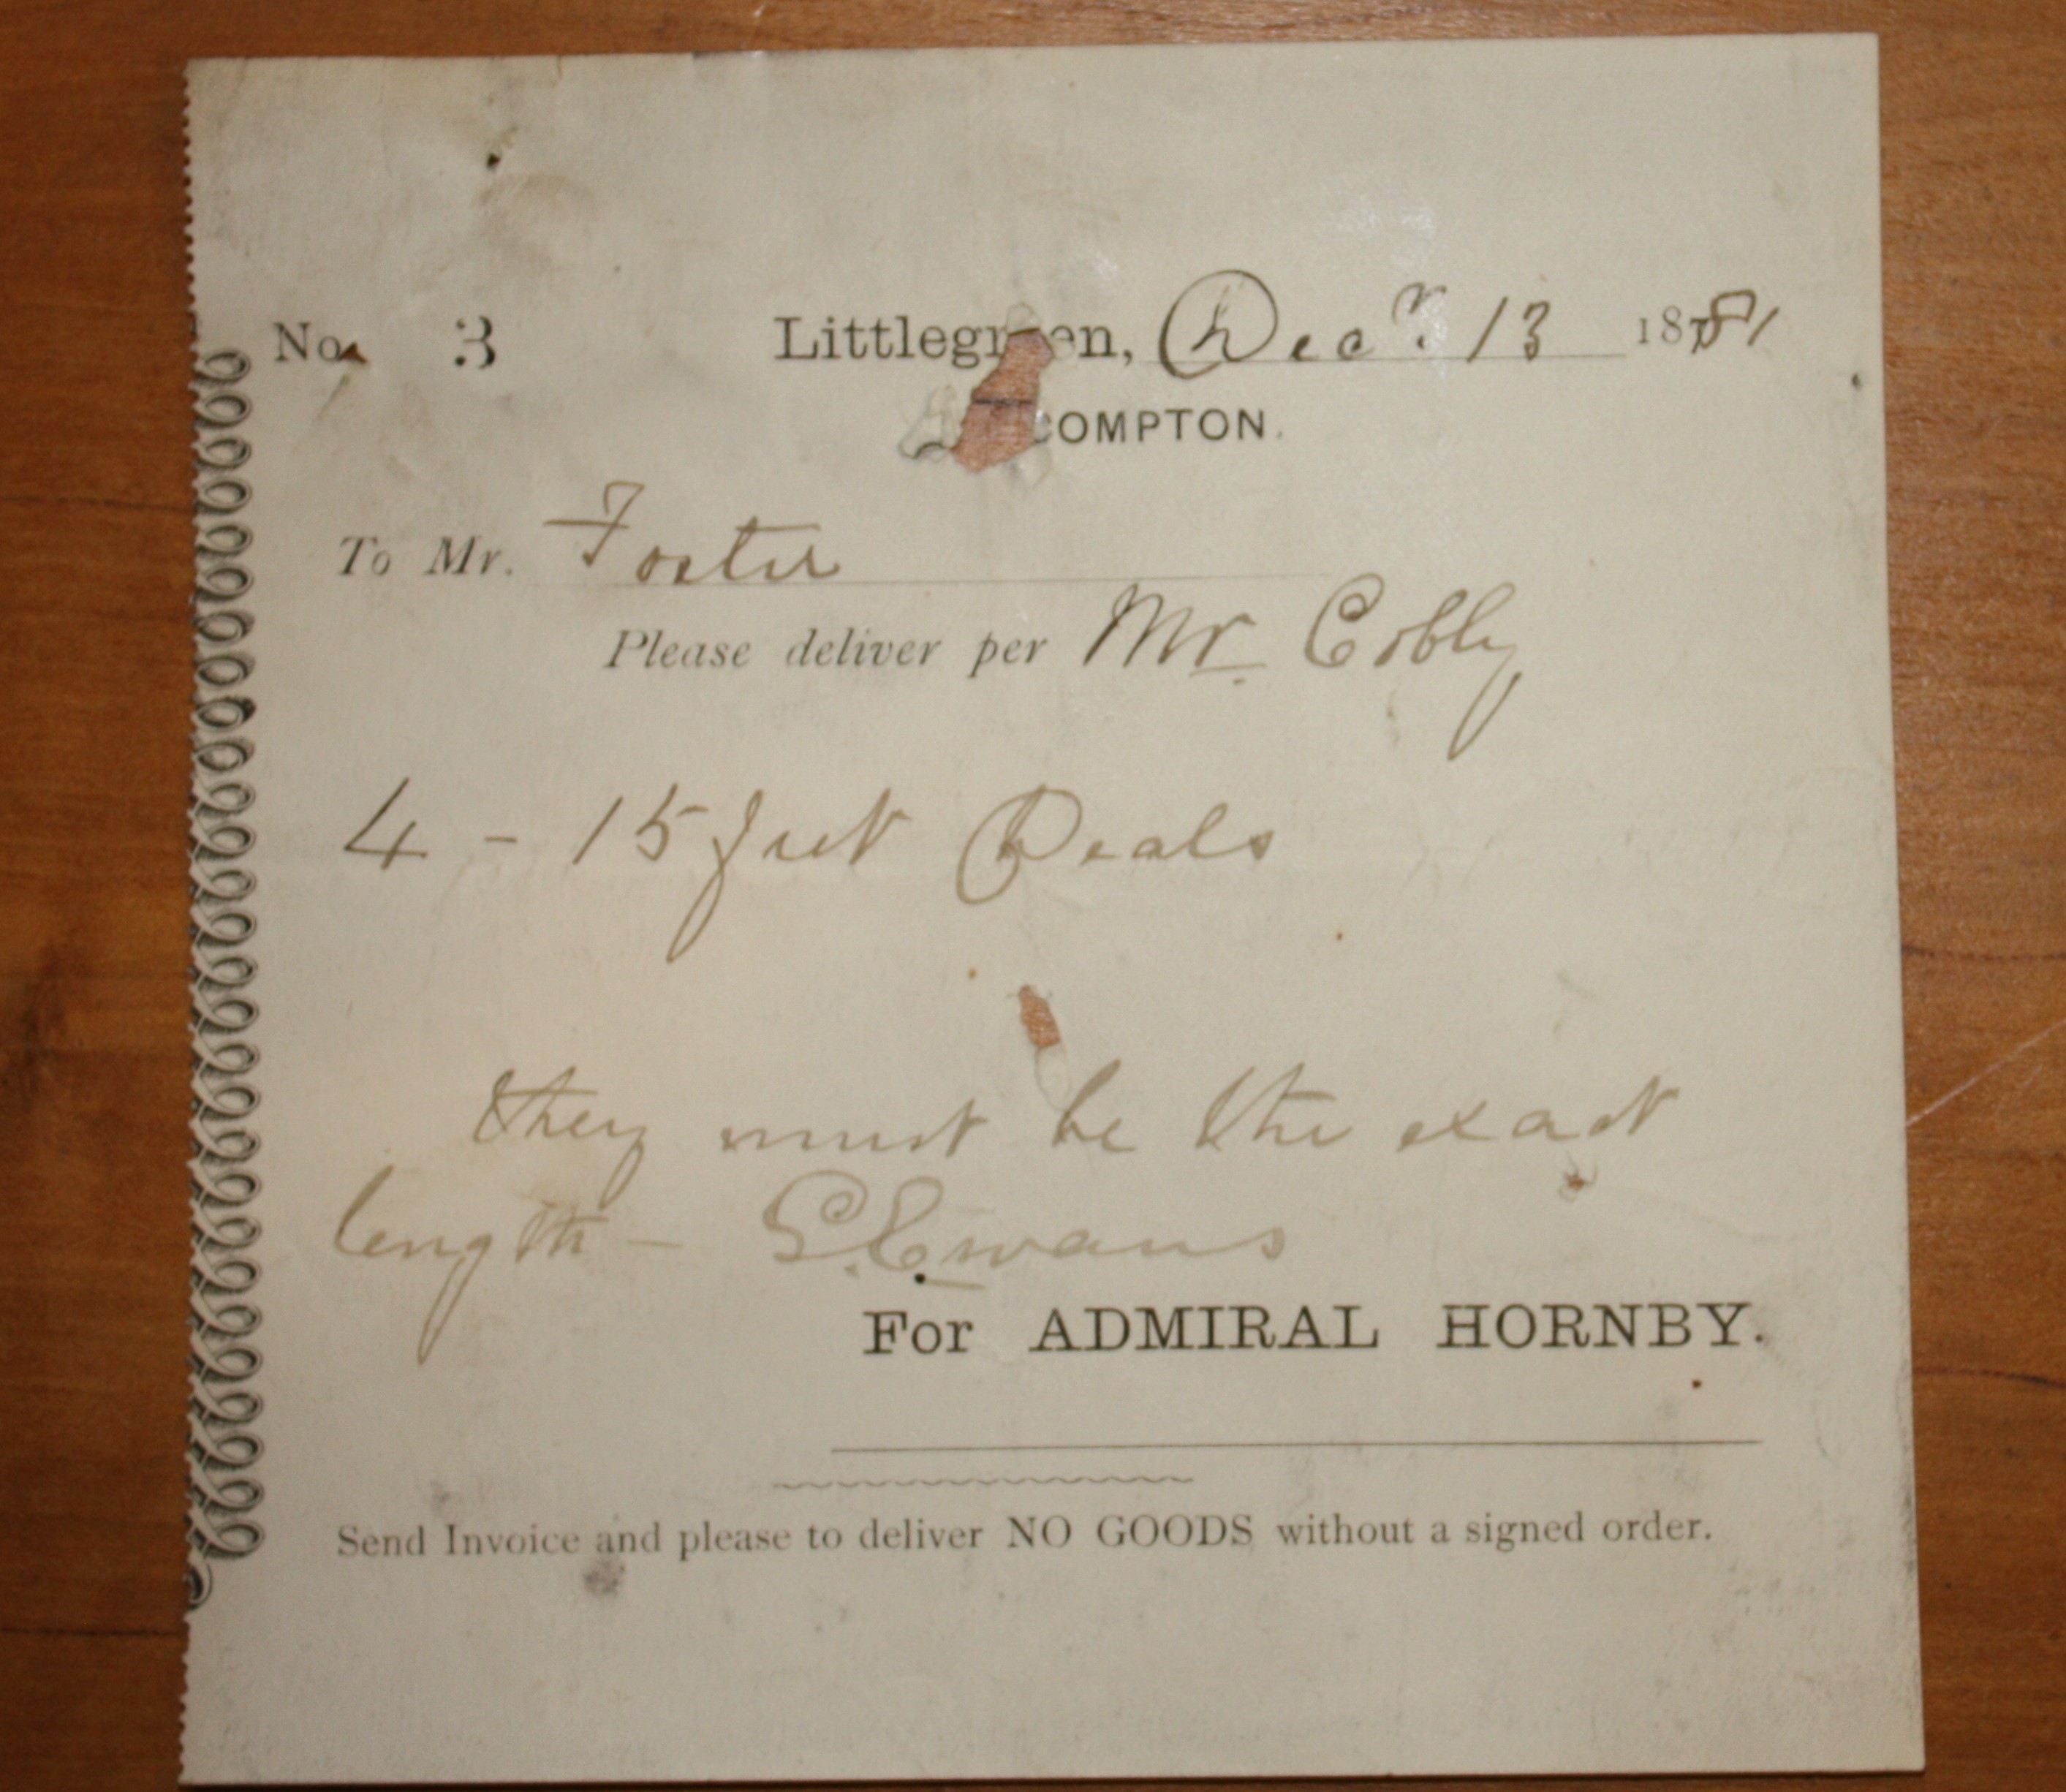 No. 3 Littlegreen, Decr. 13 1881
COMPTON.
To Mr. Foster
Please deliver per Mr. Cobby
4 - 15 feet Deals
they must be the exact
length - G. Ewans
For ADMIRAL HORNBY.
Send Invoice and please to deliver NO GOODS without a signed order.